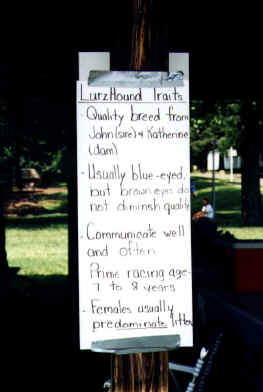 LurzHound Traits
- Quality breed from
John (sire) & Katherine
(dam)
- Usually blue-eyed,
but brown eyes do
not diminish quality
- Communicate well
and often
- Prime racing age-
7 to 8 years
- Females usually
predominate litter